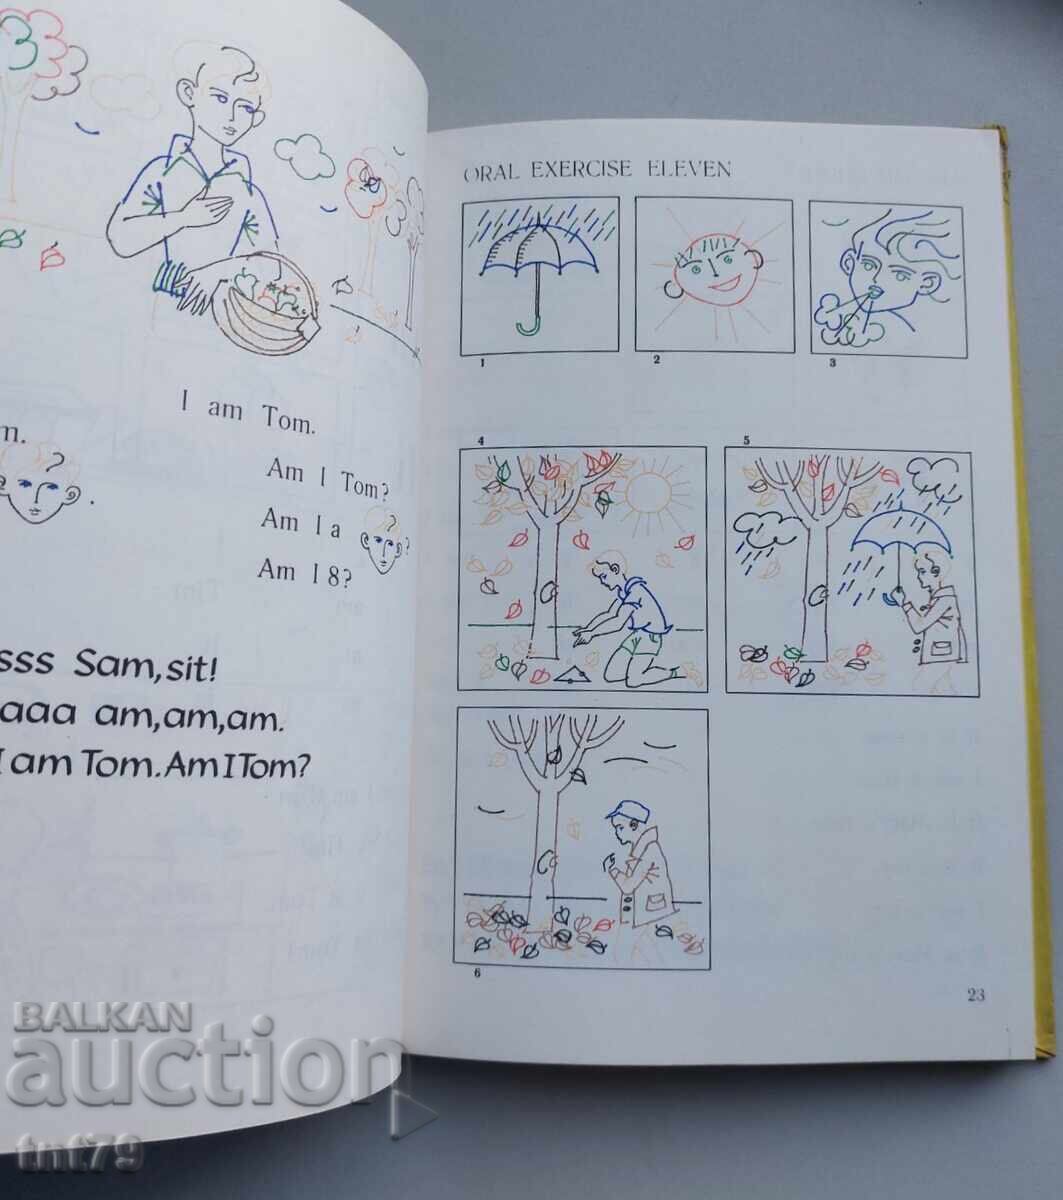 I am Tom.
Am I Tom?
Am I a ?
Am I 8?
sss Sam, sit!
aaa am, am, am.
I am Tom. Am I Tom?
ORAL EXERCISE ELEVEN
1
2
3
4
5
6
23
BALKAN
auction
tnt79